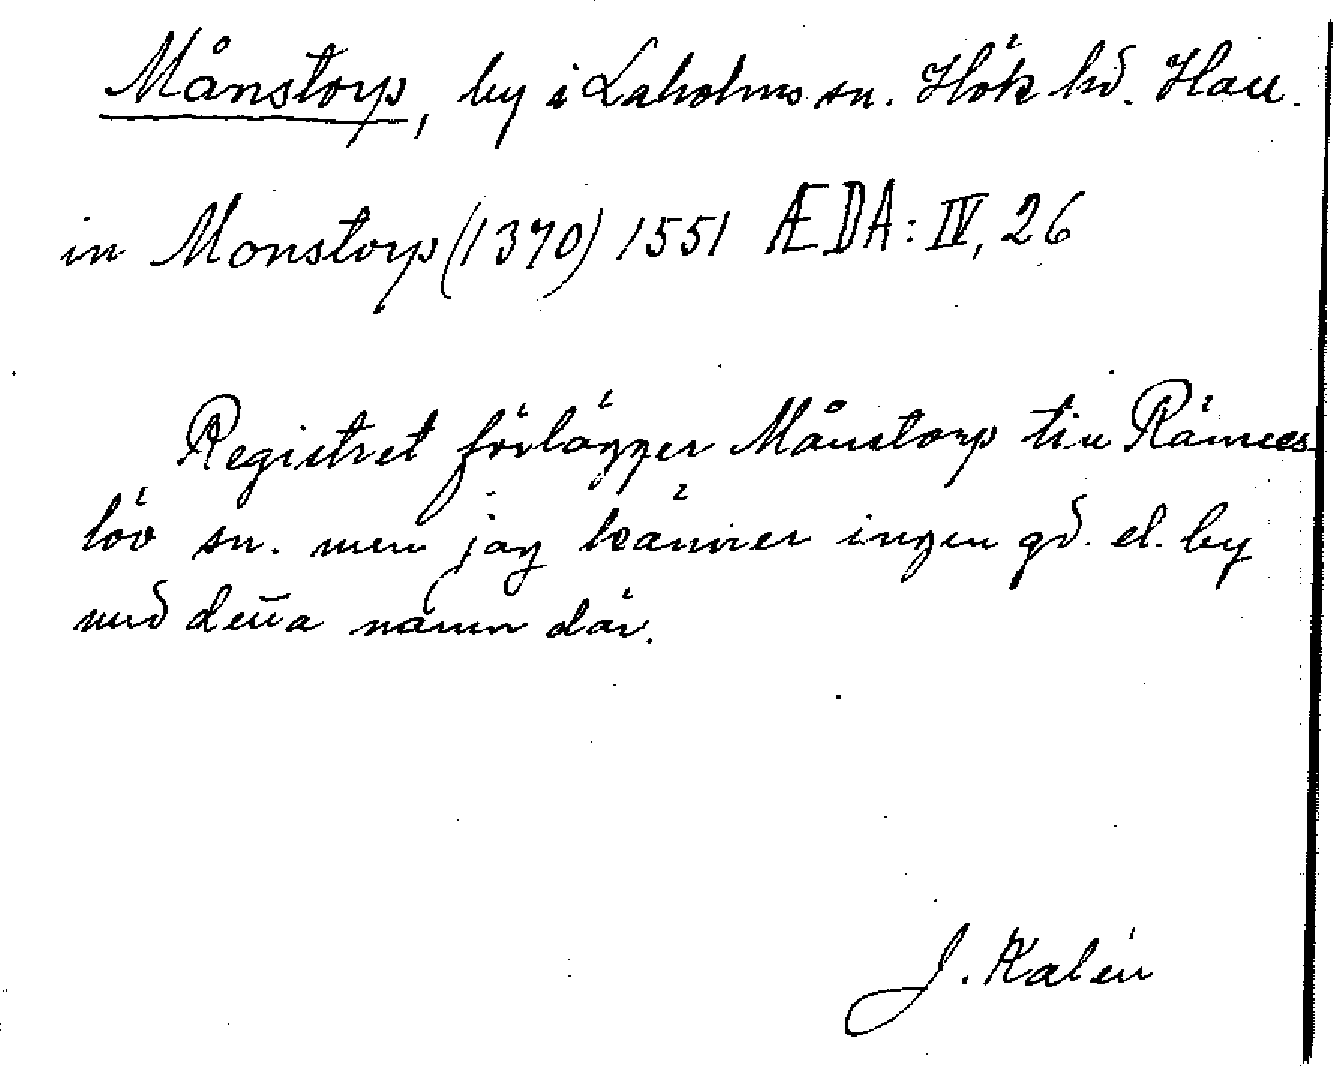 Månstorp, by i Laholms sn. Höks hd. Hall.
in Monstorp (1370) 1551 ÆDA: IV, 26
Registret förlägger Månstorp till Ränneslöv sn. men jag känner ingen gd. el. by
med detta namn där.
J. Kalén